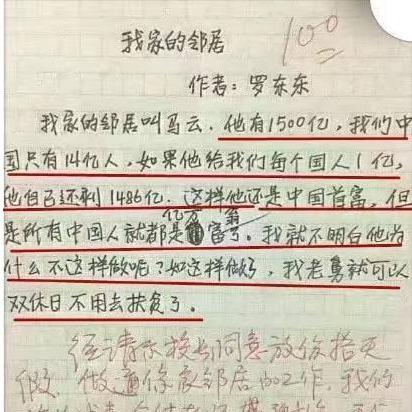 我家的邻居
100
作者：罗东东
我家的邻居叫马云. 他有1500亿，我们中
国只有14亿人，如果他给我们每个国人1亿，
他自己还剩1486亿. 这样他还是中国首富，但
亿万 翁
是所有中国人就都是富了。我就不明白他为
什么不这样做呢？如这样做了，我老舅就可以
双休日不用去扶贫了。
经请示校长同意放你搭天
假，做通你家邻居的工作，我们